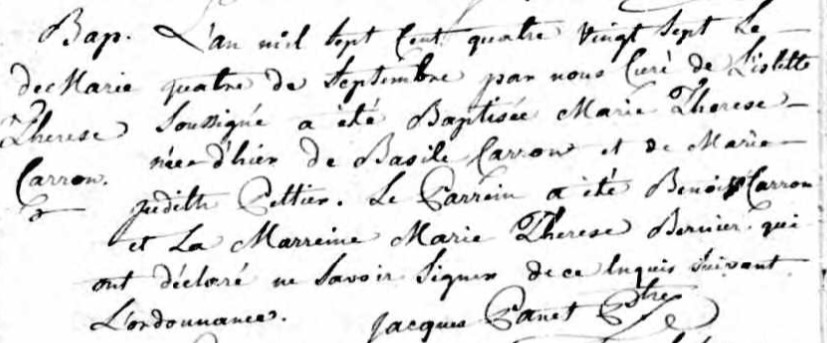 Bap. L'an mil sept Cent quatre vingt sept Le
de Marie quatre de Septembre par nous Curé de L'islette
Therese Soussigné a été Baptisée Marie Therese
Carron. née d'hier de Basile Carron et de Marie
judith Peltier. Le Parrein a été Benois Carron
et La Marreine Marie Therese Bernier qui
ont déclaré ne Savoir Signer de ce Enquis Suivant
L'ordonnance. Jacques Panet Ptre